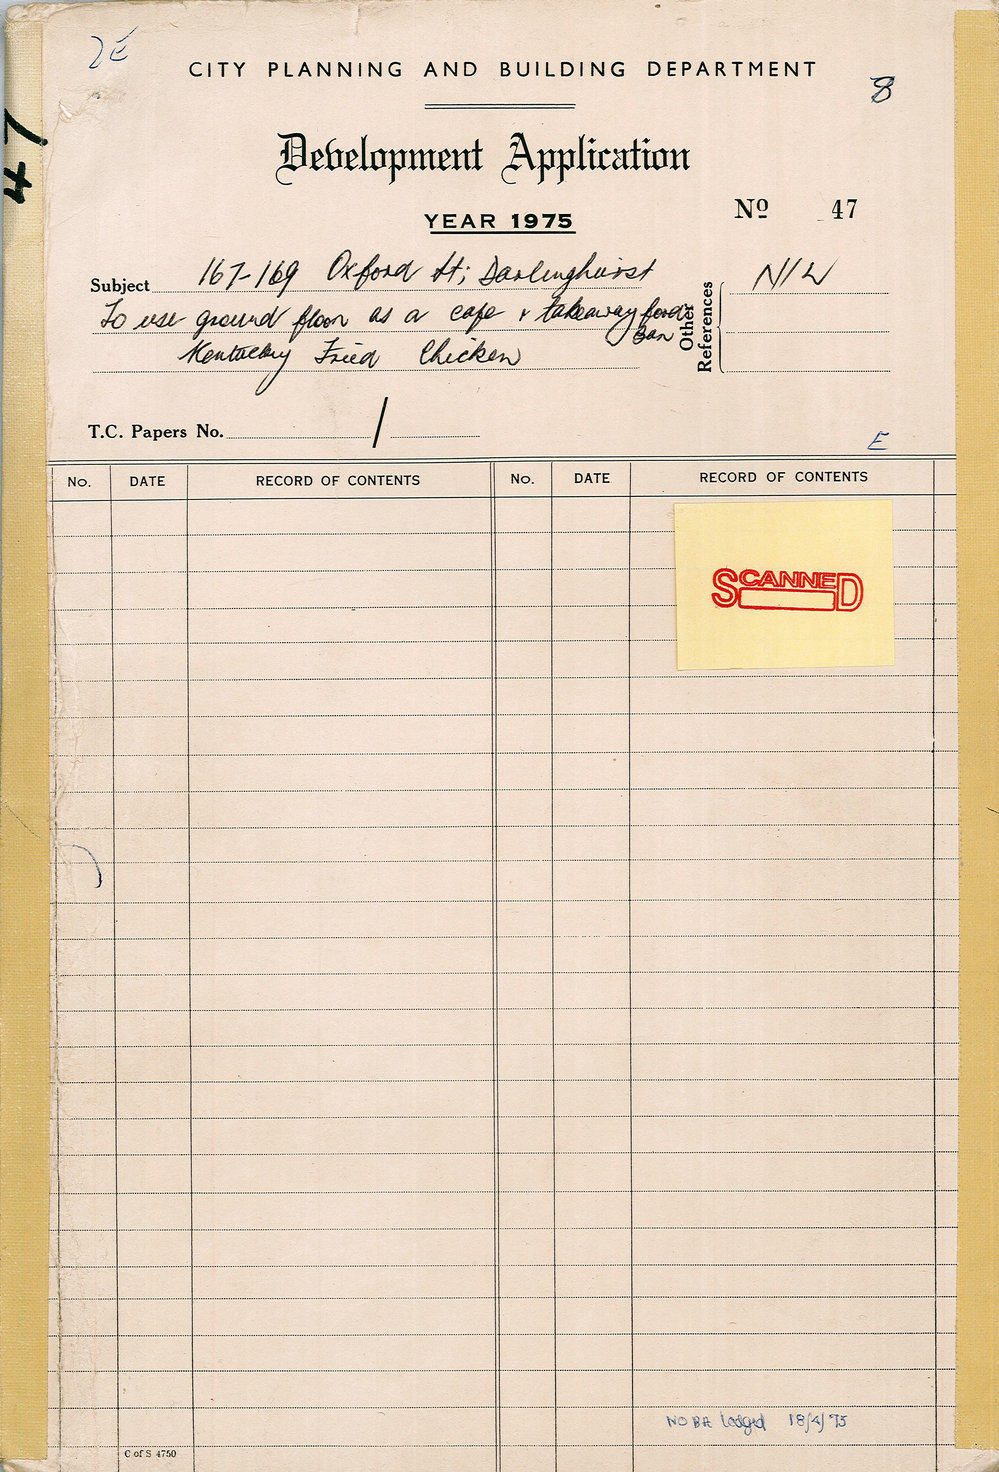 2E
CITY PLANNING AND BUILDING DEPARTMENT
8
47
Development Application
YEAR 1975
Nº 47
Subject 167-169 Oxford St; Darlinghurst
To use ground floor as a cafe & takeaway food
Bar
Kentucky Fried Chicken
Other References
NIL
T.C. Papers No. /
E
No. DATE RECORD OF CONTENTS No. DATE RECORD OF CONTENTS
SCANNED
NO BA lodged 18/4/75
C of S 4750